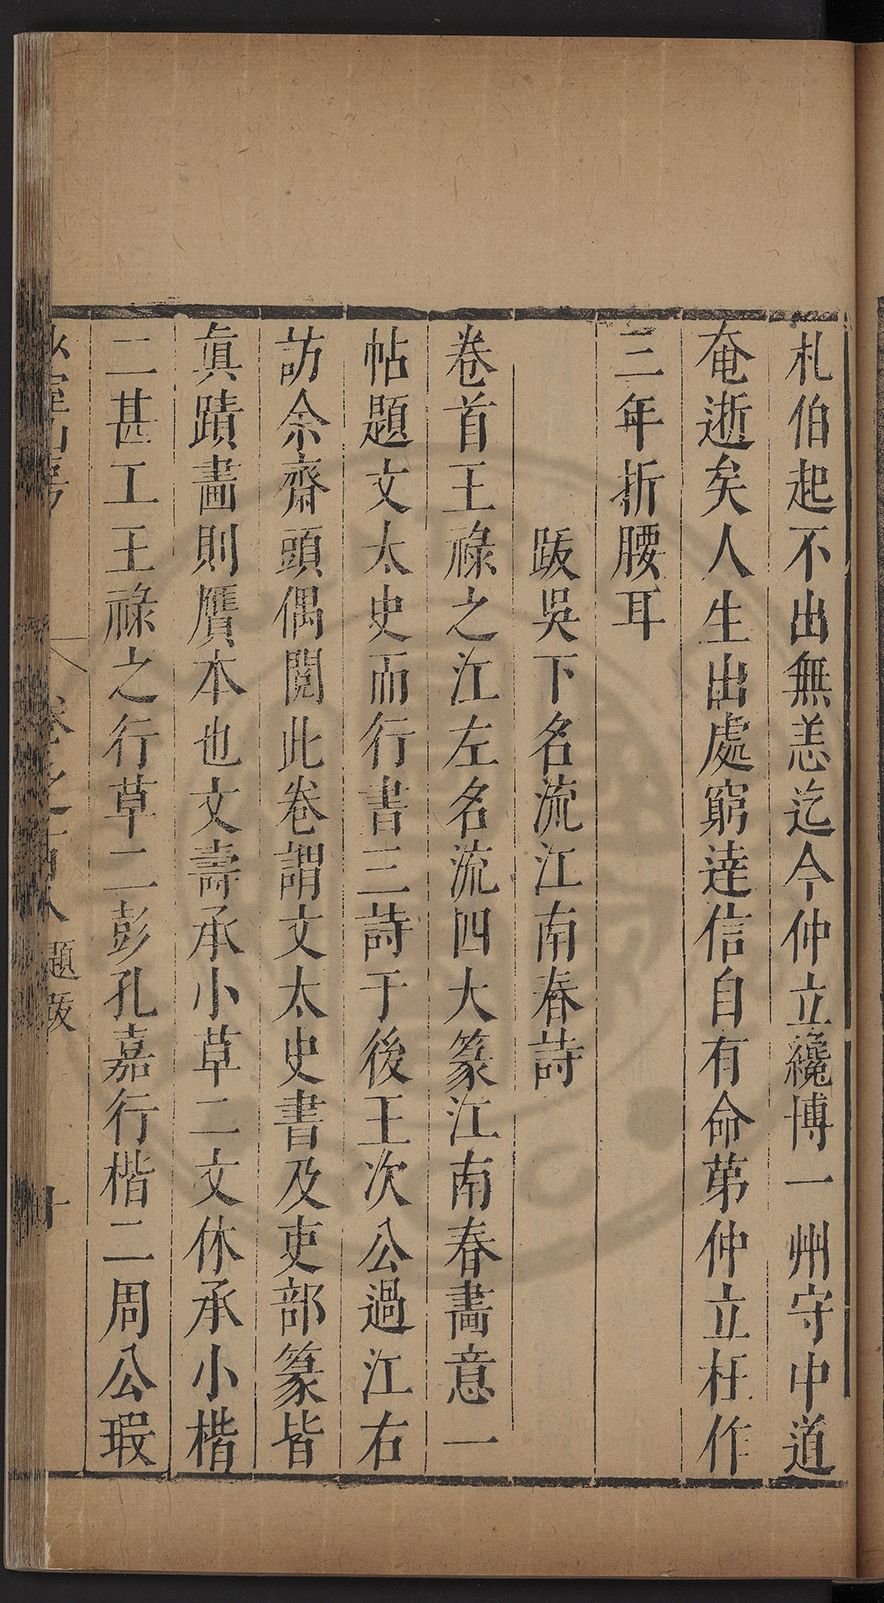 札伯起不出無恙迄今仲立纔博一州守中道
奄逝矣人生出處窮達信自有命第仲立枉作
三年折腰耳
跋吳下名流江南春詩
卷首王祿之江左名流四大篆江南春畵意一
帖題文太史而行書三詩于後王次公過江右
訪余齋頭偶閱此卷謂文太史書及吏部篆皆
眞蹟畵則贋本也文壽承小草二文休承小楷
二甚工王祿之行草二彭孔嘉行楷二周公瑕
題跋